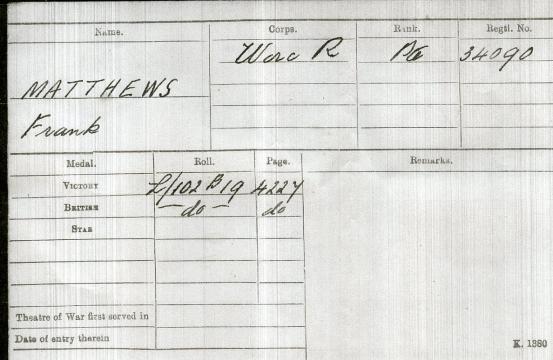 Name. Corps. Rank. Regtl. No.
MATTHEWS Worc R Pte 34090
Frank
Medal. Roll. Page. Remarks.
VICTORY L/102 B 19 4227
BRITISH — do — do
STAR
Theatre of War first served in
Date of entry therein
K. 1380